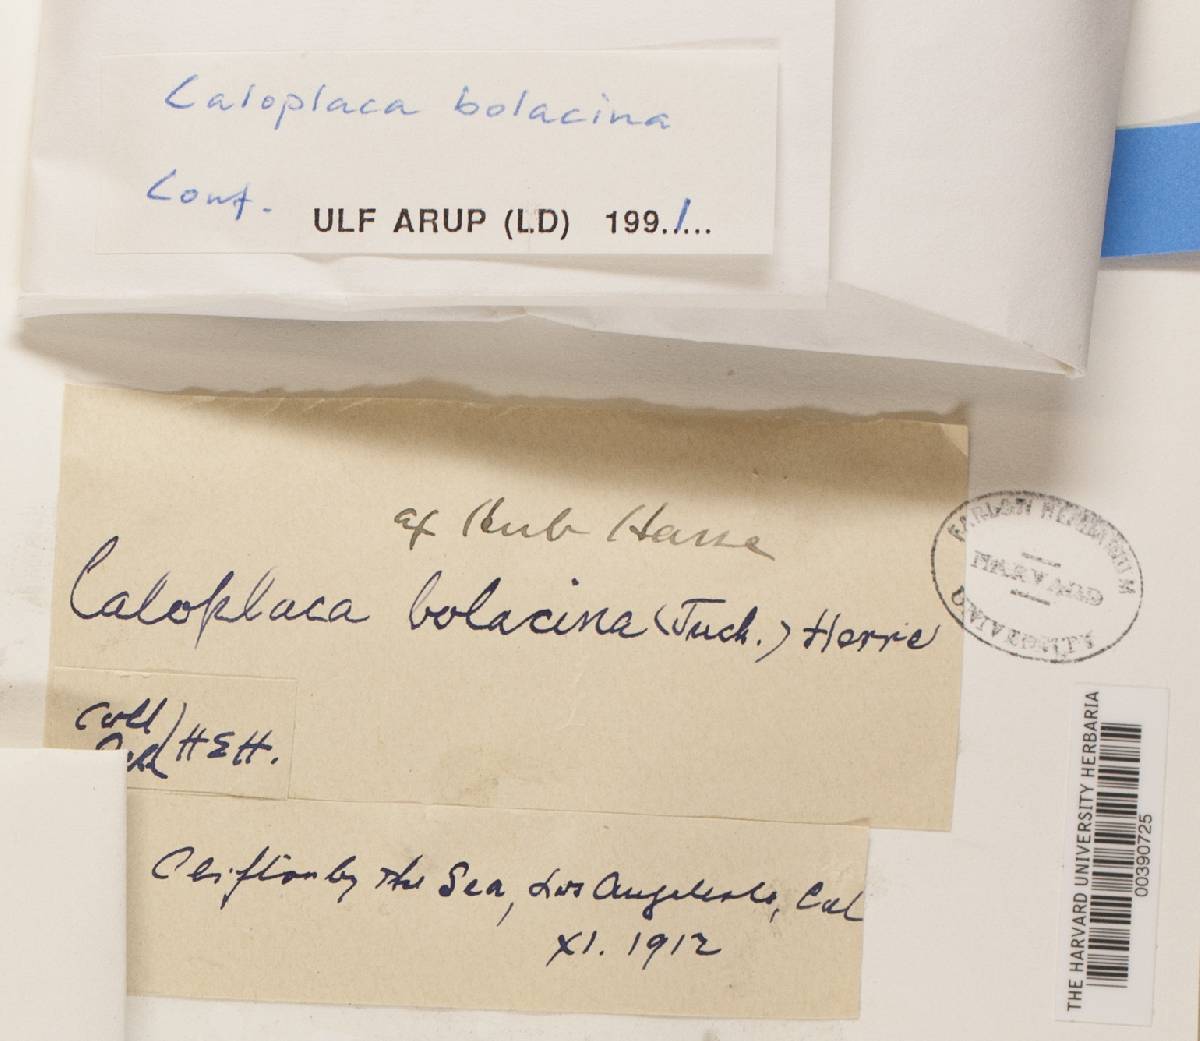 Caloplaca bolacina
Conf. ULF ARUP (LD) 199.1...
ex Herb Hasse
Caloplaca bolacina (Tuck.) Herre
Coll
HEH.
Clifton by the Sea, Los Angeles Co, Cal
XI. 1912
FARLOW HERBARIUM
HARVARD
UNIVERSITY
THE HARVARD UNIVERSITY HERBARIA
00390725